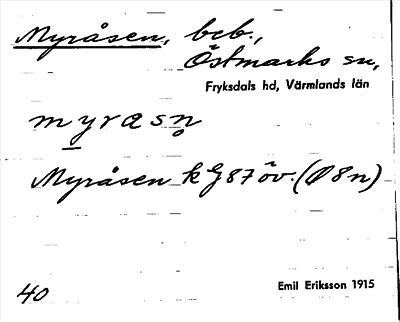 Myråsen, bcb.,
Östmarks sn,
Fryksdals hd, Värmlands län
myrasn̥
Myråsen k G87 öv. (Ø8n)
40
Emil Eriksson 1915